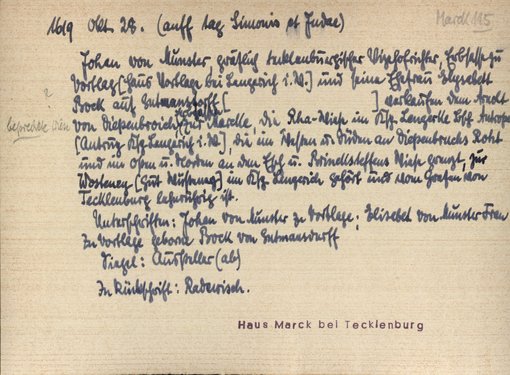 1619 Okt. 28. (auff tag Simonis et Judae) Marck 115
Johan von Munster gräflich tecklenburgischer Vizehofrichter, Erbsasse zu
Vortlag [Haus Vortlage bei Lengerich i.W.] und seine Ehefrau Elysebett
Bock auf Gutmanstorff [ ] verkaufen dem Arnolt
von Diepenbroich zur Marcke, die Wiese im Ksp. Lengerke Bsch. Antrope
[Antrup Ksp. Lengerich i.W.], die im Westen u. Süden an Diepenbrocks
und im Osten u. Norden an den Esch u. Wiese grenzt, zur
Wosteney [Gut] im Ksp. Lengerich gehört und vom Grafen von
Tecklenburg lehnrührig ist.
Unterschriften: Johan von Munster zu Vortlage; Elisebet von Munster Frau
zu Vortlage geborne Bock von Gutmansdorff
Siegel: Aussteller (ab)
In Rückschrift: Radewisch.
Haus Marck bei Tecklenburg